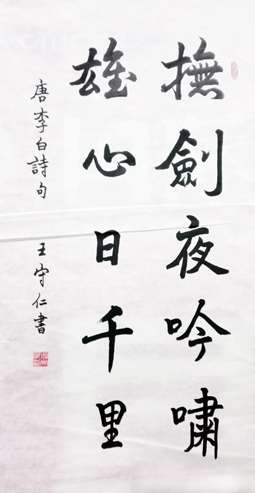 撫劍夜吟嘯
雄心日千里
唐李白詩句 王守仁書